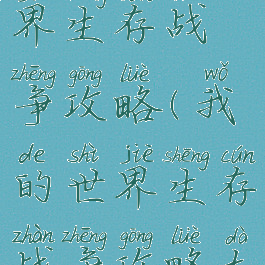 界生存战
zhēng gōng lüè wǒ
争攻略(我
de shì jiè shēng cún
的世界生存
zhàn zhēng gōng lüè dà
战争攻略大